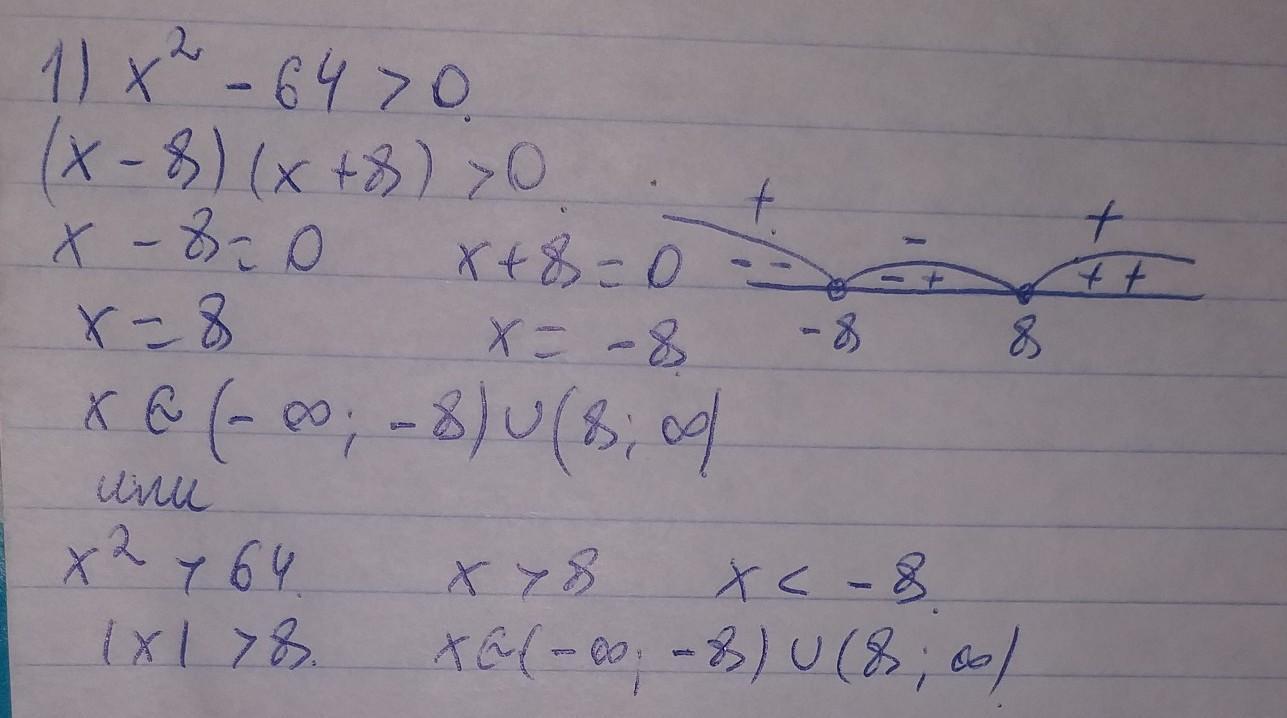 1) x² - 64 > 0.
(x - 8)(x + 8) > 0.
x - 8 = 0 x + 8 = 0
+ - +
- - - + + +
-8 8
x = 8 x = -8.
x ∈ (-∞; -8) ∪ (8; ∞)
или
x² > 64. x > 8 x < -8.
|x| > 8. x ∈ (-∞; -8) ∪ (8; ∞)